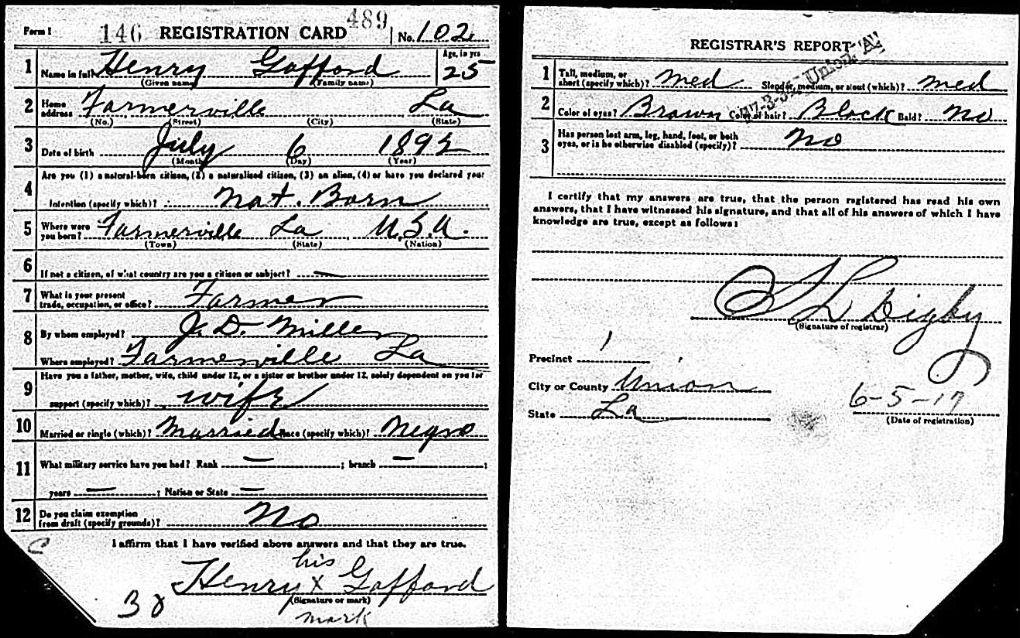 Form 1 146 REGISTRATION CARD 489 No. 102
1 Name in full Henry Gafford Age, in yrs 25
(Given name) (Family name)
2 Home address Farmerville La
(No.) (Street) (City) (State)
3 Date of birth July 6 1892
(Month) (Day) (Year)
4 Are you (1) a natural-born citizen, (2) a naturalized citizen, (3) an alien, (4) or have you declared your
intention (specify which)? Nat. Born
5 Where were you born? Farmerville La U.S.A.
(Town) (State) (Nation)
6 If not a citizen, of what country are you a citizen or subject? —
7 What is your present trade, occupation, or office? Farmer
8 By whom employed? J. D. Miller
Where employed? Farmerville La
9 Have you a father, mother, wife, child under 12, or a sister or brother under 12, solely dependent on you for
support (specify which)? wife
10 Married or single (which)? Married Race (specify which)? Negro
11 What military service have you had? Rank — ; branch — ;
years — ; Nation or State —
12 Do you claim exemption from draft (specify grounds)? No
I affirm that I have verified above answers and that they are true.
his
Henry x Gafford
(Signature or mark)
mark
C
38
REGISTRAR'S REPORT
1 Tall, medium, or short (specify which)? Med Slender, medium, or stout (which)? med
2 Color of eyes? Brown Color of hair? Black Bald? No
3 Has person lost arm, leg, hand, foot, or both eyes, or is he otherwise disabled (specify)? No
I certify that my answers are true, that the person registered has read his own
answers, that I have witnessed his signature, and that all of his answers of which I have
knowledge are true, except as follows:
S L Digby
(Signature of registrar)
Precinct 1
City or County Union
State La
6-5-17
(Date of registration)